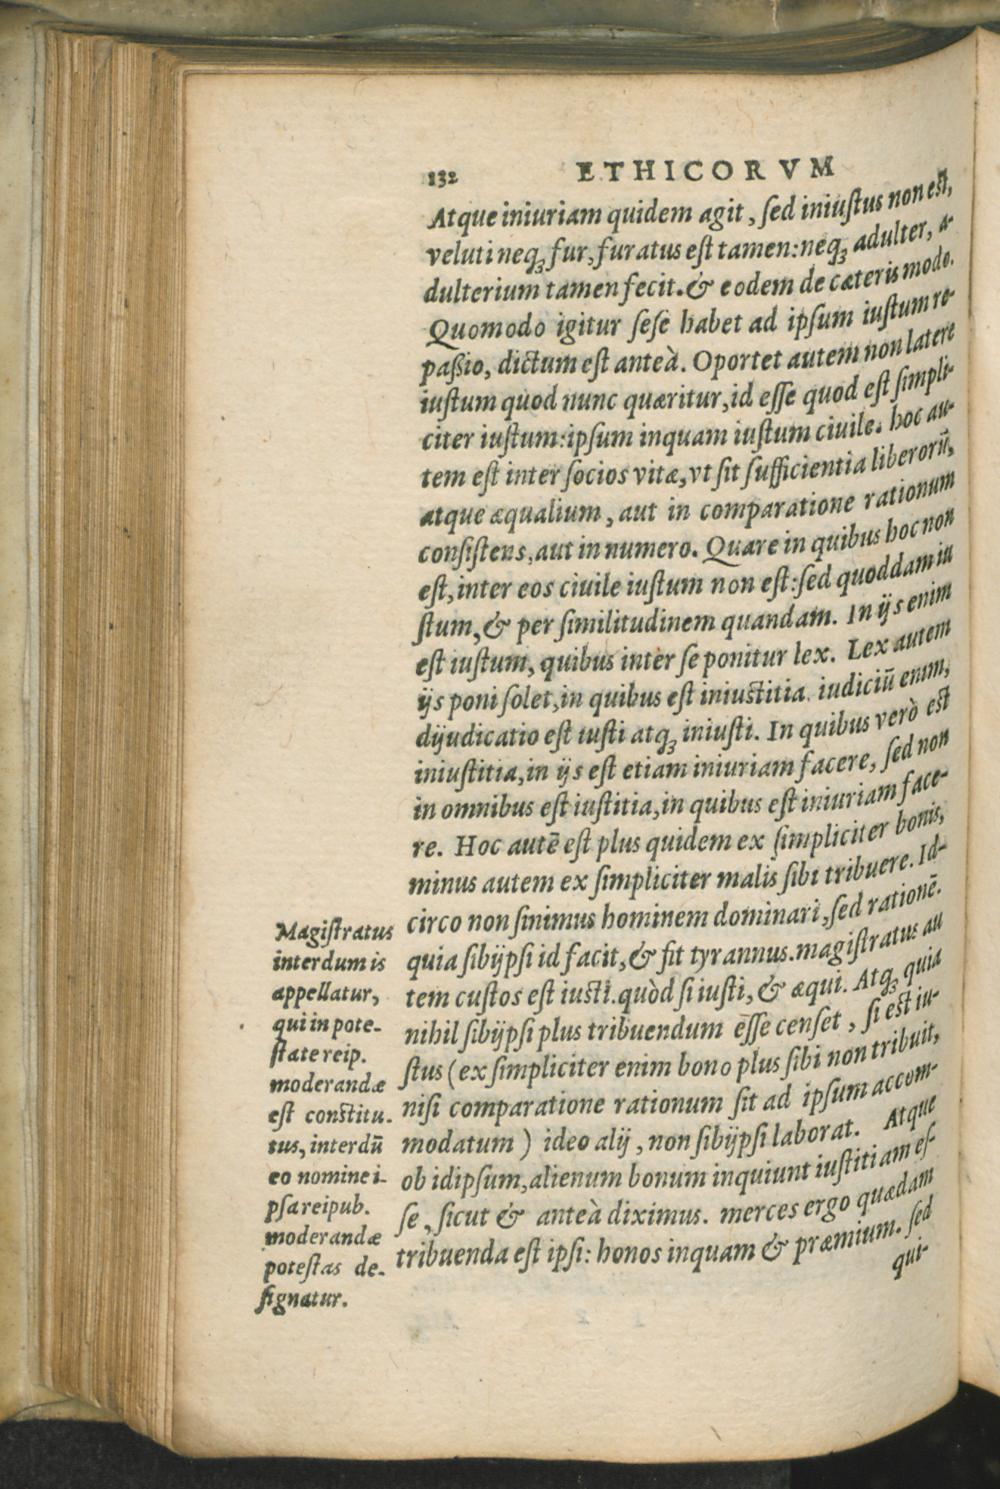 132 ETHICORVM
Atque iniuriam quidem agit, sed iniustus non est,
veluti neq; fur, furatus est tamen: neq; adulter, a-
dulterium tamen fecit. & eodem de cæteris modo.
Quomodo igitur sese habet ad ipsum iustum re-
paßio, dictum est anteà. Oportet autem non latere
iustum quod nunc quæritur, id esse quod est simpli-
citer iustum: ipsum inquam iustum ciuile. hoc au-
tem est inter socios vitæ, vt sit sufficientia liberorũ,
atque æqualium, aut in comparatione rationum
consistens, aut in numero. Quare in quibus hoc non
est, inter eos ciuile iustum non est: sed quoddam iu
stum, & per similitudinem quandam. In ijs enim
est iustum, quibus inter se ponitur lex. Lex autem
ijs poni solet, in quibus est iniustitia. iudiciũ enim,
dijudicatio est iusti atq; iniusti. In quibus verò est
iniustitia, in ijs est etiam iniuriam facere, sed non
in omnibus est iustitia, in quibus est iniuriam face-
re. Hoc autẽ est plus quidem ex simpliciter bonis,
minus autem ex simpliciter malis sibi tribuere. Id-
circo non sinimus hominem dominari, sed rationẽ.
quia sibijpsi id facit, & fit tyrannus. magistratus au
tem custos est iusti. quòd si iusti, & æqui. Atq; quia
nihil sibijpsi plus tribuendum esse censet, si est iu-
stus (ex simpliciter enim bono plus sibi non tribuit,
nisi comparatione rationum sit ad ipsum accom-
modatum) ideo alij, non sibijpsi laborat. Atque
ob idipsum, alienum bonum inquiunt iustitiam es-
se, sicut & anteà diximus. merces ergo quædam
tribuenda est ipsi: honos inquam & præmium. sed
qui-
Magistratus
interdum is
appellatur,
qui in pote-
state reip.
moderandæ
est constitu-
tus, interdũ
eo nomine i-
psa reipub.
moderandæ
potestas de-
signatur.